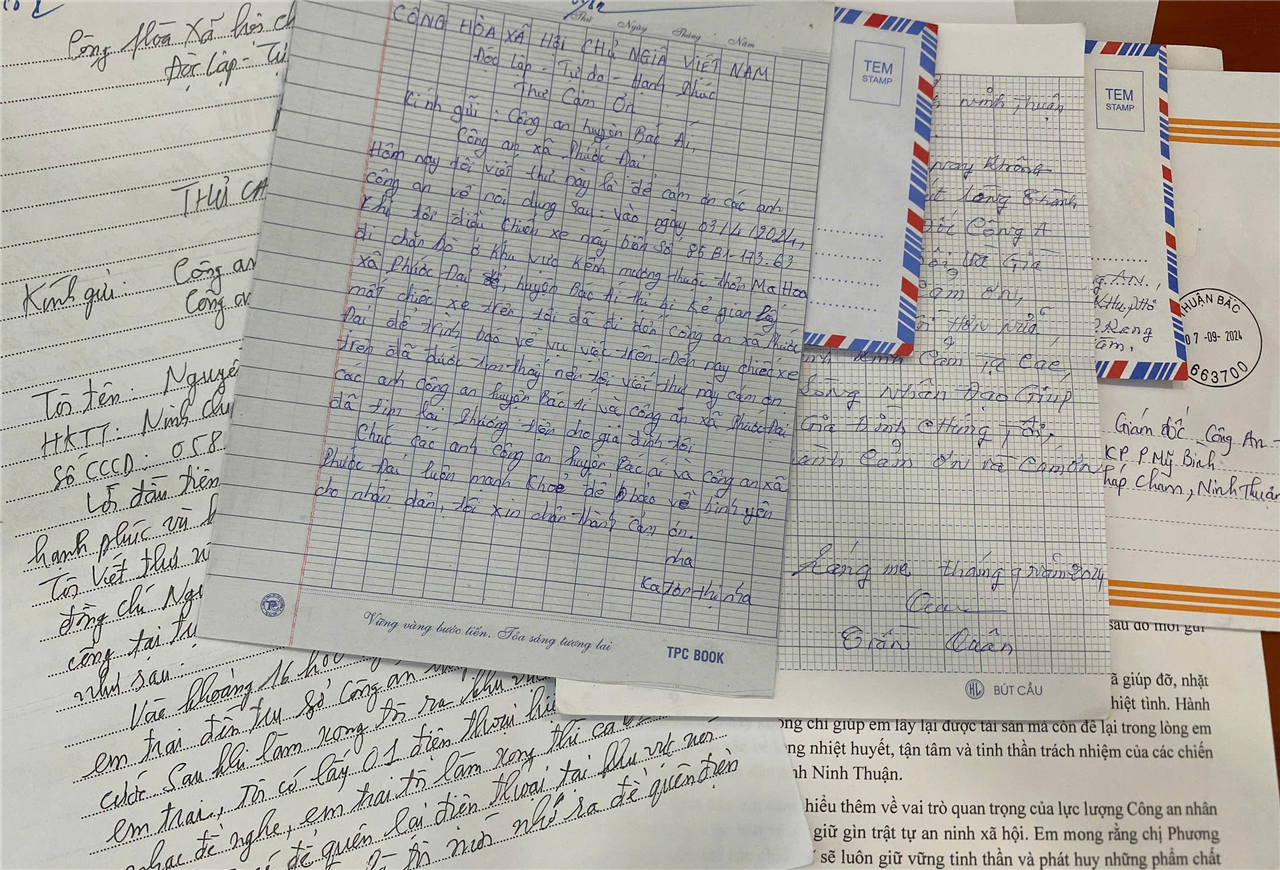 Công Hoà Xã hội ch
Độc lập - Tự
THƯ CẢ
Kính gửi: Công an
Công an
Tôi tên: Nguyễ
HKTT: Ninh chu
Số CCCD: 058
Lời đầu tiên
hạnh phúc và
Tôi viết thư n
đồng chí Ngu
công tại tr
như sau:
Vào khoảng 16 h
em trai đến trụ sở công an
cước sau khi làm xong tôi ra khu
em trai, Tôi có lấy 01 điện thoại
nhạc để nghe, em trai tôi làm xong thì cả
để quên lại điện thoại tại khu vực nơi
nhớ ra để quên điện
Thứ Ngày Tháng Năm
CỘNG HÒA XÃ HỘI CHỦ NGHĨA VIỆT NAM
Độc lập - Tự do - Hạnh Phúc
Thư Cảm Ơn
Kính gửi: Công an huyện Bác Ái,
Công an xã Phước Đại
Hôm nay tôi viết thư này là để cảm ơn các anh
công an về nội dung sau: vào ngày 03/4/2024,
khi tôi điều chiếc xe máy biển số 85B1-173.63
đi chăn bò ở khu vực kênh mương thuộc thôn Ma Hoa
xã Phước Đại, huyện Bác Ái thì bị kẻ gian lấy
mất chiếc xe trên tôi đã đi đến công an xã Phước
Đại để trình báo về vụ việc trên. Đến nay chiếc xe
trên đã được tìm thấy nên tôi viết thư này cảm ơn
các anh công an huyện Bác Ái và công an xã Phước Đại
đã tìm lại phương tiện cho gia đình tôi.
Chúc các anh công an huyện Bác ái và công an xã
Phước Đại luôn mạnh khỏe để bảo vệ bình yên
cho nhân dân, tôi xin chân thành cảm ơn.
nha
Katơr thị nha
Vững vàng bước tiến. Tỏa sáng tương lai
TPC BOOK
TEM
STAMP
TEM
STAMP
Ninh Thuận
Không
lòng thành
Công A
và Gia
Cảm ơn,
Hơn nữa
Cảm Tạ Các
Lòng nhân Đạo Giúp
Gia Đình Chúng Tôi,
Cảm ơn và Cảm ơn
tháng 9 năm 2024
Trần Quân
HL BÚT CẦU
AN.
THUẬN BẮC
07-09-2024
663700
Giám đốc Công An
KP P.Mỹ Bình
háp Chàm, Ninh Thuận
sau đó mới gửi
ã giúp đỡ, nhặt
hiệt tình. Hành
ng chỉ giúp em lấy lại được tài sản mà còn để lại trong lòng em
ng nhiệt huyết, tận tâm và tinh thần trách nhiệm của các chiến
nh Ninh Thuận.
hiểu thêm về vai trò quan trọng của lực lượng Công an nhân
giữ gìn trật tự an ninh xã hội. Em mong rằng chị Phương
sẽ luôn giữ vững tinh thần và phát huy những phẩm chất